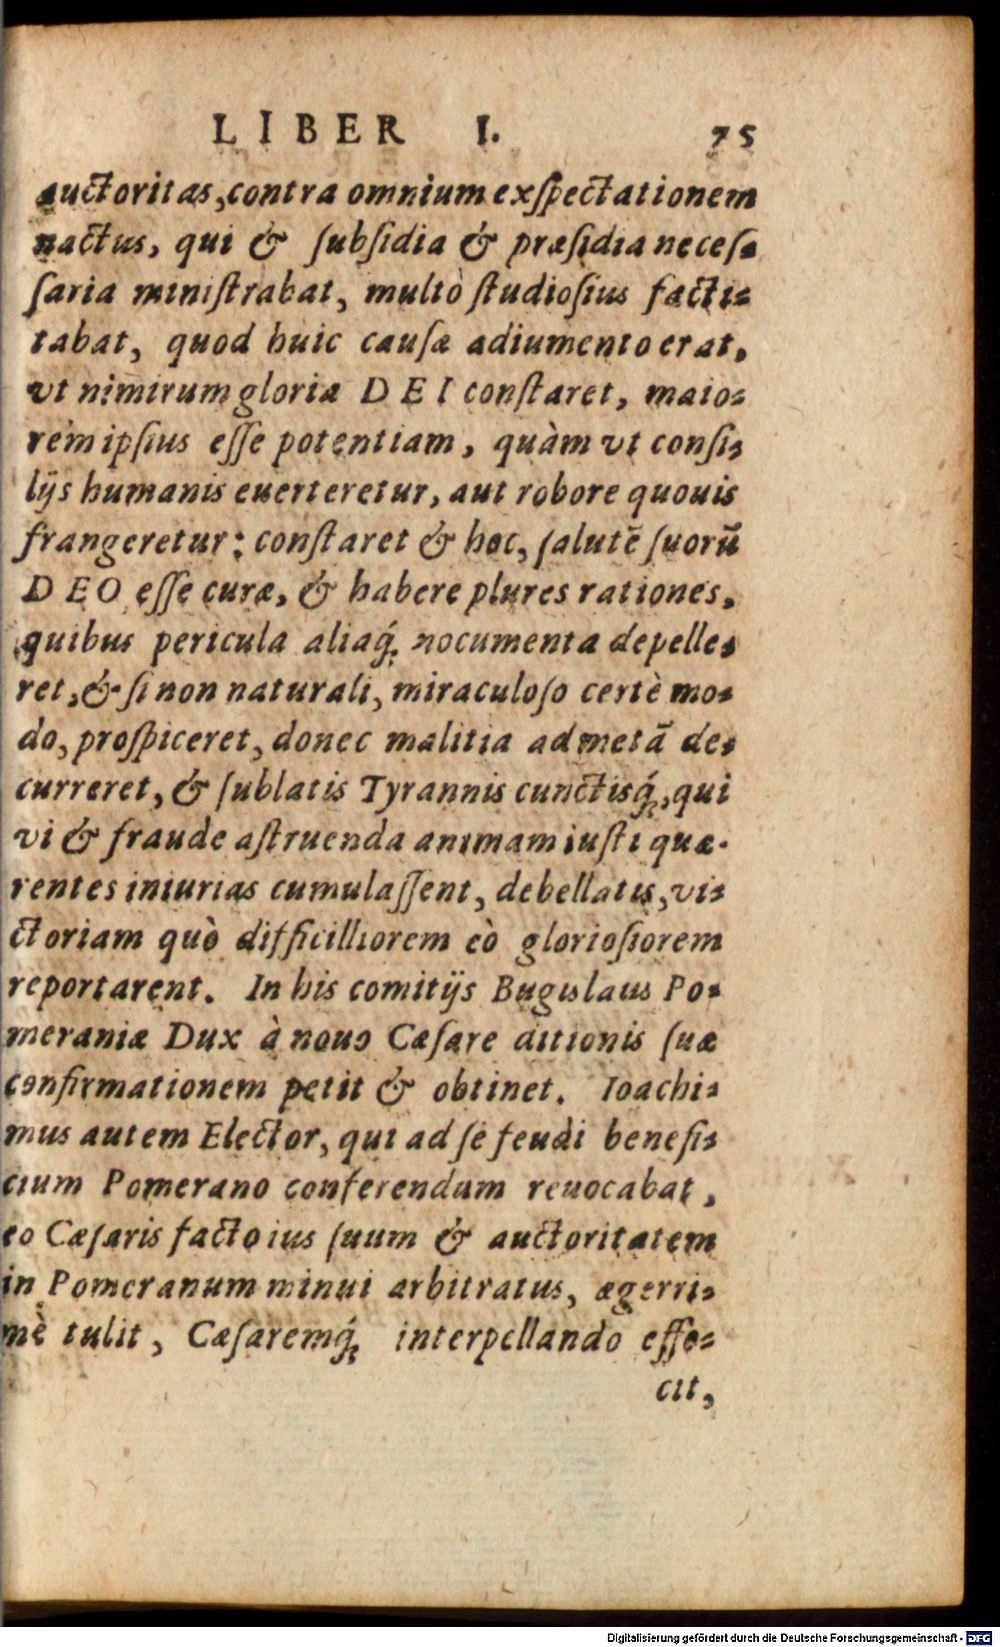 LIBER I. 75
auctoritas, contra omnium exſpectationem
nactus, qui & ſubſidia & præſidia neceſ-
ſaria miniſtrabat, multò ſtudioſius facti-
tabat, quod huic cauſæ adiumento erat,
vt nimirum gloriæ DEI conſtaret, maio-
rem ipſius eſſe potentiam, quàm vt conſi-
lijs humanis euerteretur, aut robore quouis
frangeretur: conſtaret & hoc, ſalutē ſuorū
DEO eſſe curæ, & habere plures rationes,
quibus pericula aliaq́; nocumenta depelle-
ret, & ſi non naturali, miraculoſo certè mo-
do, proſpiceret, donec malitia ad metā de-
curreret, & ſublatis Tyrannis cunctisq́;, qui
vi & fraude aſtruenda animam iuſti quæ-
rentes iniurias cumulaſſent, debellatis, vi-
ctoriam quò difficiliorem eò glorioſiorem
reportarent. In his comitijs Bugislaus Po-
meraniæ Dux à nouo Cæſare ditionis ſuæ
confirmationem petit & obtinet. Ioachi-
mus autem Elector, qui ad ſe feudi benefi-
cium Pomerano conferendum reuocabat,
eo Cæſaris facto ius ſuum & auctoritatem
in Pomeranum minui arbitratus, ægerri-
mè tulit, Cæſaremq́; interpellando effe-
cit,
Digitalisierung gefördert durch die Deutsche Forschungsgemeinschaft - DFG